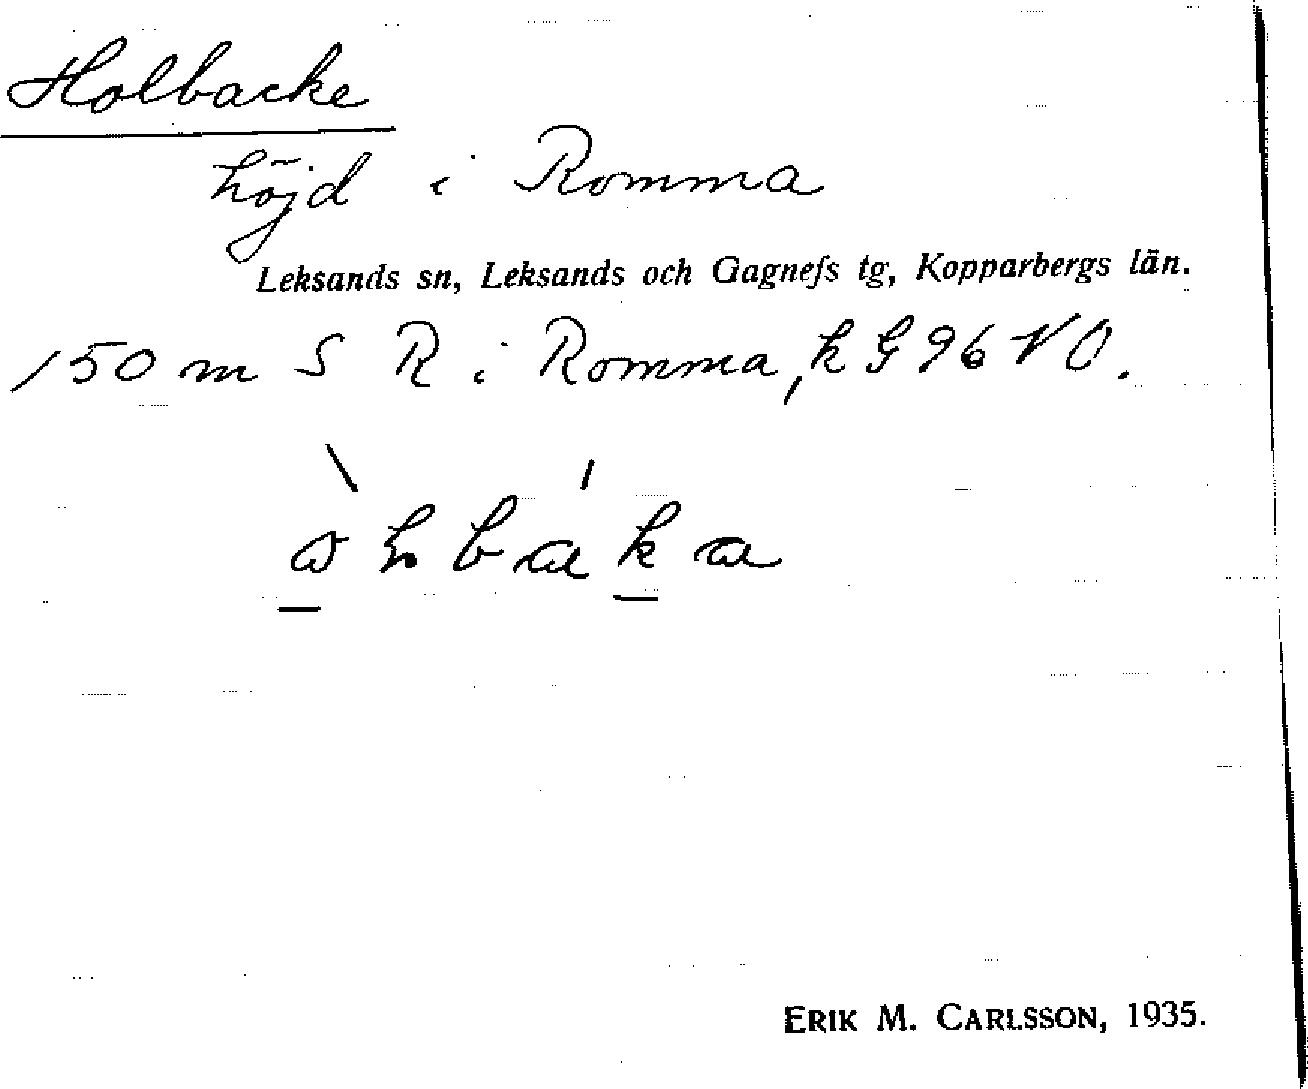 Holbacke
höjd i Romma
Leksands sn, Leksands och Gagnefs tg, Kopparbergs län.
150 m S R i Romma, k G 96 NO.
ERIK M. CARLSSON, 1935.